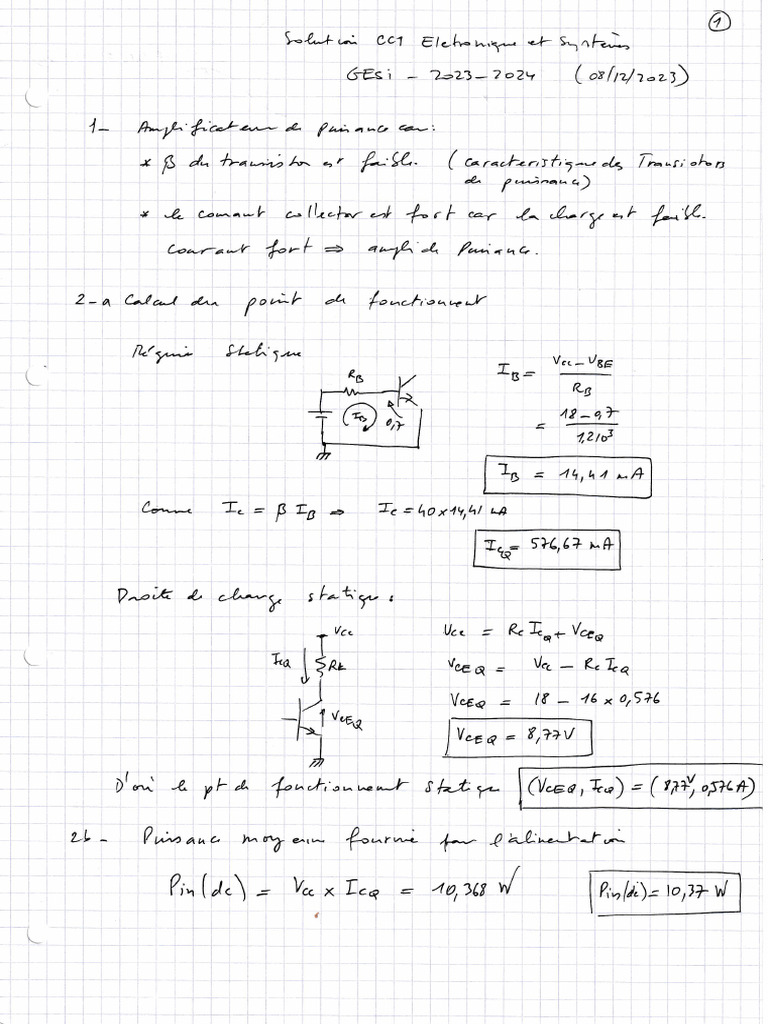 1
Solution CC1 Eletronique et Systèmes
GESi - 2023-2024 (08/12/2023)
1- Amplificateur de puissance car:
* β du transistor est faible. (caracteristique des Transistors
de puissance)
* le courant collector est fort car la charge est faible.
Courant fort ⇒ ampli de Puissance.
2-a Calcul du point de fonctionnent
Régime Statique
R_B
I_B
0,7
I_B = (Vcc - V_BE) / R_B
= (18 - 0,7) / 1,2 10³
I_B = 14,41 mA
Comme Ic = β I_B ⇒ Ic = 40 x 14,41 mA
I_CQ = 576,67 mA
Droite de charge statique :
Vcc
I_CQ
V_CEQ
Vcc = Rc I_CQ + V_CEQ
V_CEQ = Vcc - Rc I_CQ
V_CEQ = 18 - 16 x 0,576
V_CEQ = 8,77 V
D'où le pt de fonctionnement statique (V_CEQ, I_CQ) = (8,77V, 0,576A)
2b - Puissance moyenne fournie par l'alimentation
Pin(dc) = Vcc x I_CQ = 10,368 W
Pin(dc) = 10,37 W